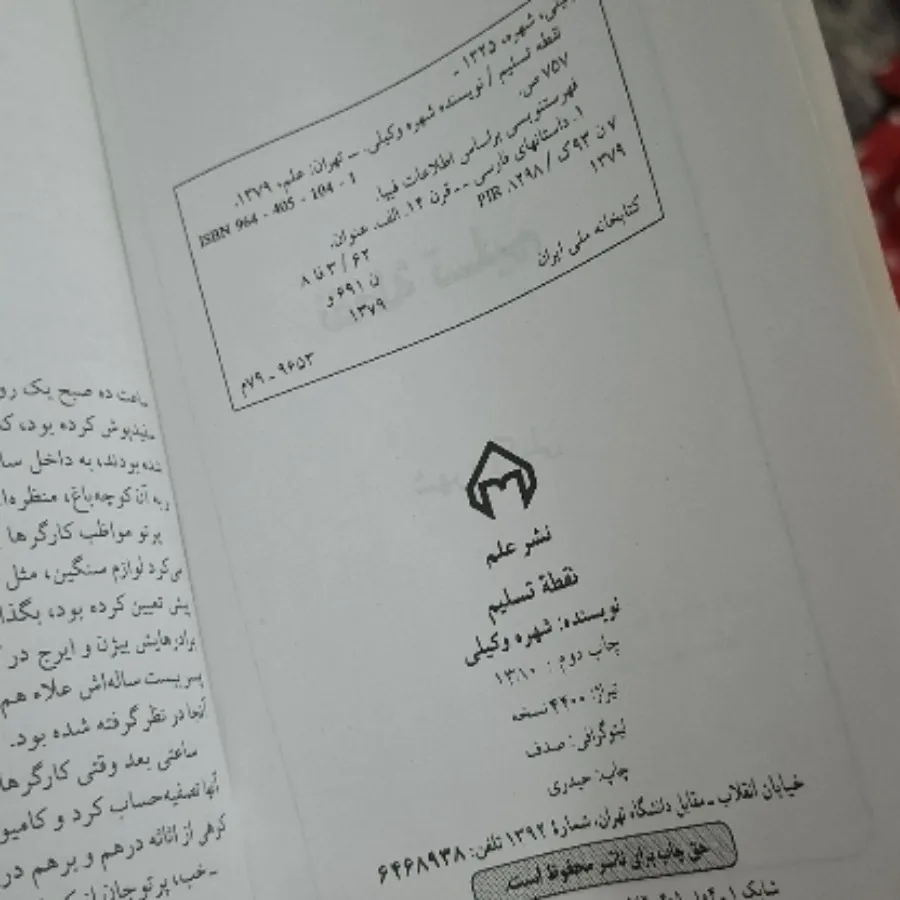 شهره، ۱۳۲۵ -
نقطه تسلیم / نویسنده شهره وکیلی. -- تهران: علم، ۱۳۷۹.
۷۵۷ ص.
ISBN 964 - 405 - 104 - 1
فهرستنویسی براساس اطلاعات فیپا.
۱. داستانهای فارسی -- قرن ۱۴. الف. عنوان.
۷ ن ۹۳ ک / PIR ۸۲۹۸
۶۲ / ۳ فا ۸
۱۳۷۹
ن ۶۹۱ و
۱۳۷۹
کتابخانه ملی ایران
۹۶۵۳ - ۷۹م
نشر علم
نقطهٔ تسلیم
نویسنده: شهره وکیلی
چاپ دوم : ۱۳۸۰
تیراژ: ۴۴۰۰ نسخه
لیتوگرافی: صدف
چاپ: حیدری
خیابان انقلاب - مقابل دانشگاه تهران، شمارهٔ ۱۳۹۲ تلفن: ۶۴۶۸۹۳۸
حق چاپ برای ناشر محفوظ است.
شابک
ساعت ده صبح یک رو
سفیدپوش کرده بود، ک
شده بودند، به داخل سا
و به آن کوچه‌باغ، منظره‌ا
پرتو مواظب کارگرها
می‌کرد لوازم سنگین، مثل
پیش تعیین کرده بود، بگذا
برادرهایش بیژن و ایرج در
پسر بیست ساله‌اش علاء هم
آنجا در نظر گرفته شده بود.
ساعتی بعد وقتی کارگرها
آنها تصفیه‌حساب کرد و کامیو
کوهی از اثاثه درهم و برهم در
- خب، پرتو جان